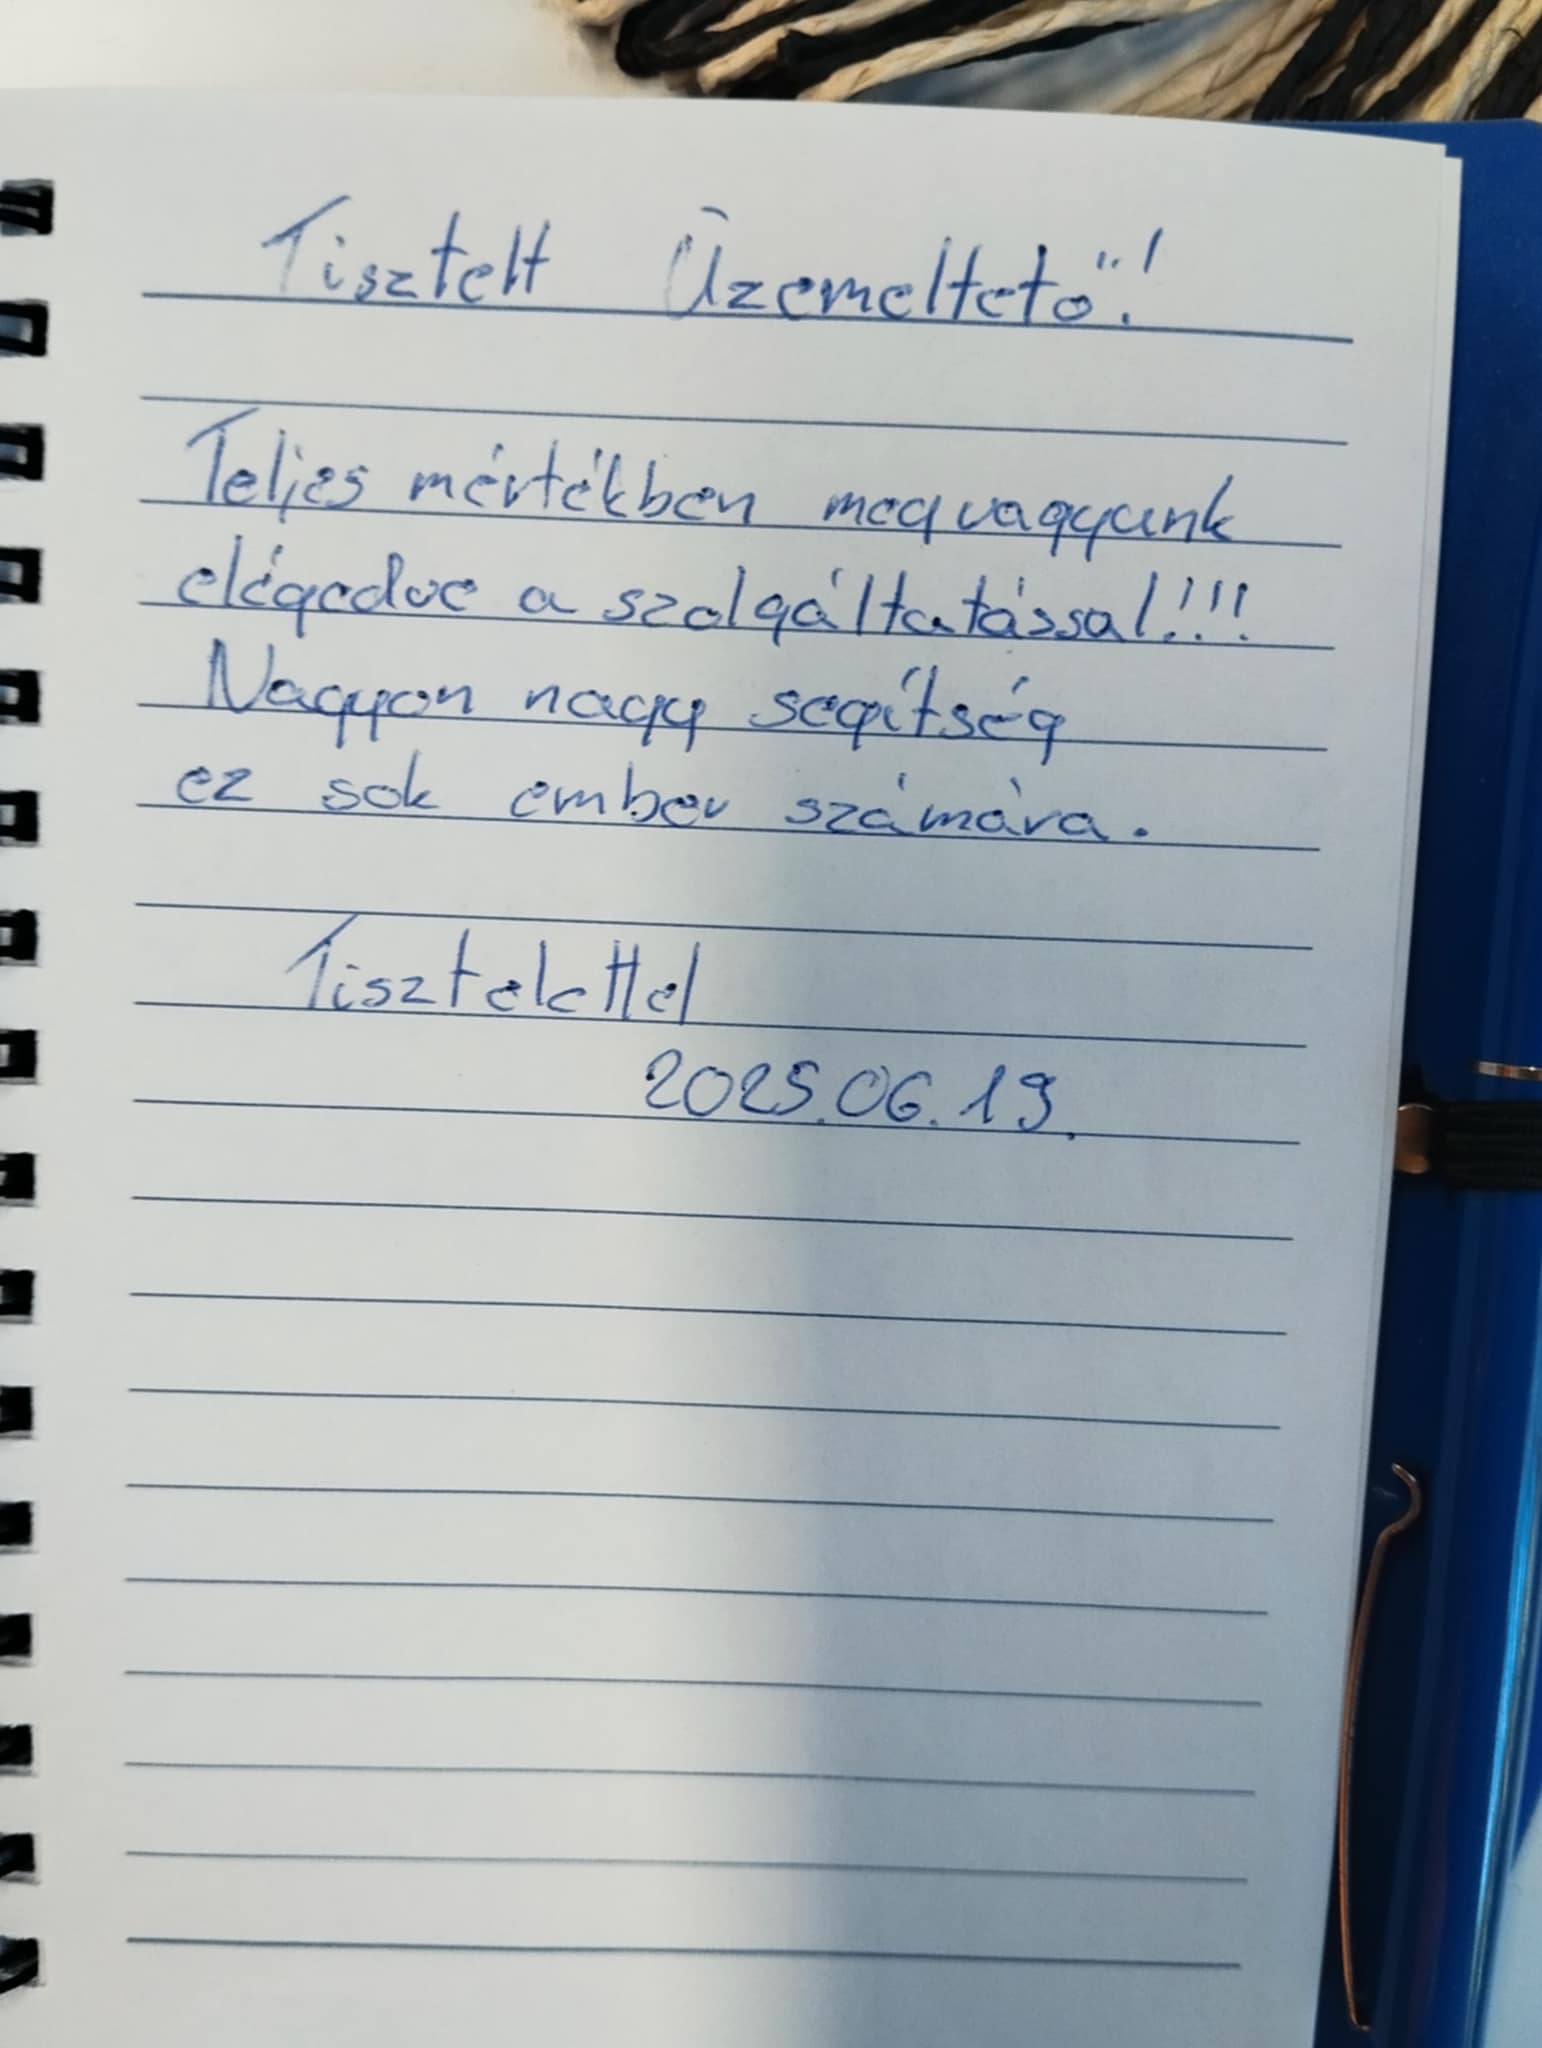 Tisztelt Üzemeltető!
Teljes mértékben megvagyunk
elégedve a szolgáltatással!!!
Nagyon nagy segítség
ez sok ember számára.
Tisztelettel
2025.06.19.